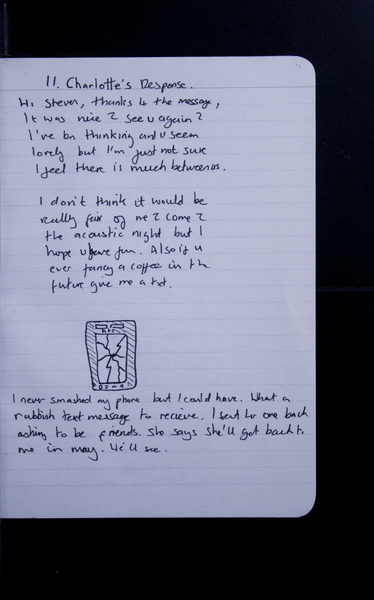 11. Charlotte's Response.
Hi Steven, thanks 4 the message,
It was nice 2 see u again 2
I've bn thinking and u seem
lovely but I'm just not sure
I feel there is much between us.
I don't think it would be
really fair of me 2 come 2
the acoustic night but I
hope u have fun. Also if u
ever fancy a coffee in the
future give me a txt.
htc
I never smashed my phone but I could have. What a
rubbish text message to recieve. I sent her one back
asking to be friends. She says she'll get back to
me in may. We'll see.